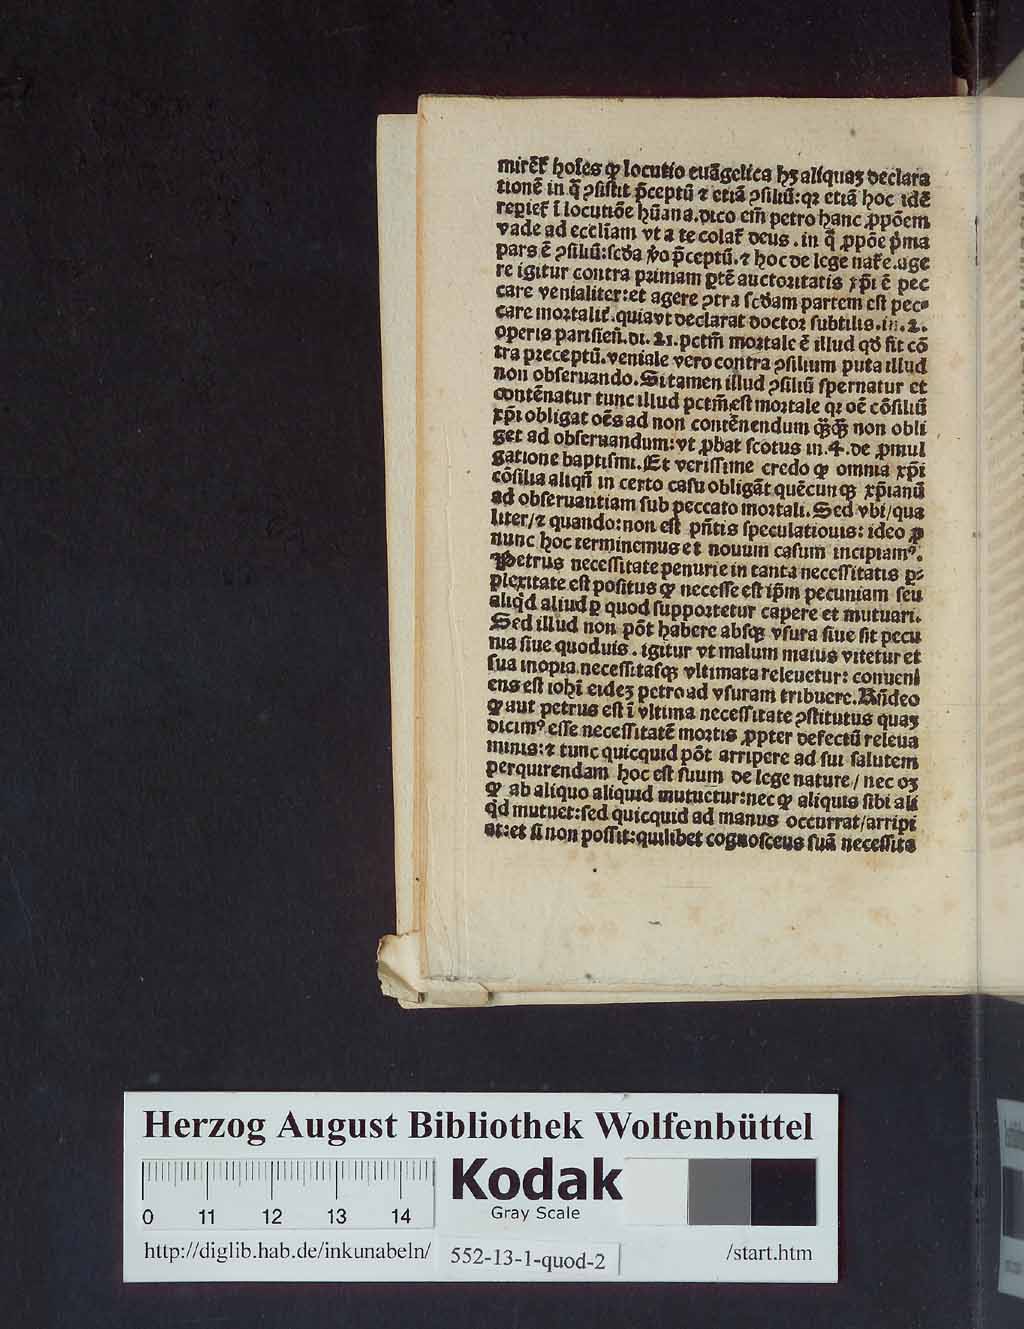 mirēt̄ hoīes ꝙ locutio euāgelica hꝫ aliquaꝫ declara
tionē in q̄ ꝯsistit p̄ceptū ⁊ etiā ꝯsiliū: qꝛ etiā hoc idē
reꝑiet̄ ī locutiōe hūana. dico em̄ petro hanc ꝓpōem
vade ad eccl̄iam vt a te colat̄ deus . in q̄ ꝓpōe p̄ma
pars ē ꝯsiliū: sc̄da ꝟo p̄ceptū. ⁊ hoc de lege nat̄e. age
re igitur contra primam ꝑtē auctoritatis xp̄i ē pec
care venialiter: et agere ꝯtra sc̄dam partem est pec⸗
care mortalit̄. quia vt declarat doctor subtilis. in .2.
operis parisien̄. di. 21. pctm̄ mortale ē illud qd̄ fit cō
tra preceptū. veniale vero contra ꝯsilium puta illud
non obseruando. Si tamen illud ꝯsiliū spernatur et
contēnatur tunc illud pctm̄ est mortale qꝛ oē cōsiliū
xp̄i obligat oēs ad non contēnendum q̄ꝙ̄ non obli
get ad obseruandum: vt ꝓbat scotus in .4. de ꝓmul
gatione baptismi. Et verissime credo ꝙ omnia xp̄i
cōsilia aliqn̄ in certo casu obligāt quēcunqꝫ xp̄ianū
ad obseruantiam sub peccato mortali. Sed vbi/qua
liter/⁊ quando: non est pn̄tis speculatiouis: ideo ꝓ
nunc hoc terminemus et nouum casum incipiamꝰ.
Petrus necessitate penurie in tanta necessitatis ꝑ⸗
plexitate est positus ꝙ necesse est ip̄m pecuniam seu
aliqd̄ aliud ꝑ quod supportetur capere et mutuari.
Sed illud non pōt habere absqꝫ vsura siue sit pecu
nia siue quoduis . igitur vt malum maius vitetur et
sua inopia necessitasqꝫ vltimata releuetur: conueni
ens est iohī eideꝫ petro ad vsuram tribuere. Rn̄deo
ꝙ aut petrus est ī vltima necessitate ꝯstitutus quaꝫ
dicimꝰ esse necessitatē mortis ꝓpter defectū releua
minis: ⁊ tunc quicquid pōt arripere ad sui salutem
perquirendam hoc est suum de lege nature/ nec oꝫ
ꝙ ab aliquo aliquid mutuetur: nec ꝙ aliquis sibi ali
qd̄ mutuet: sed quicquid ad manus occurrat/arripi
at: et si non possit: quilibet cognosceus suā necessita
Herzog August Bibliothek Wolfenbüttel
Kodak
Gray Scale
0 11 12 13 14
http://diglib.hab.de/inkunabeln/ 552-13-1-quod-2 /start.htm